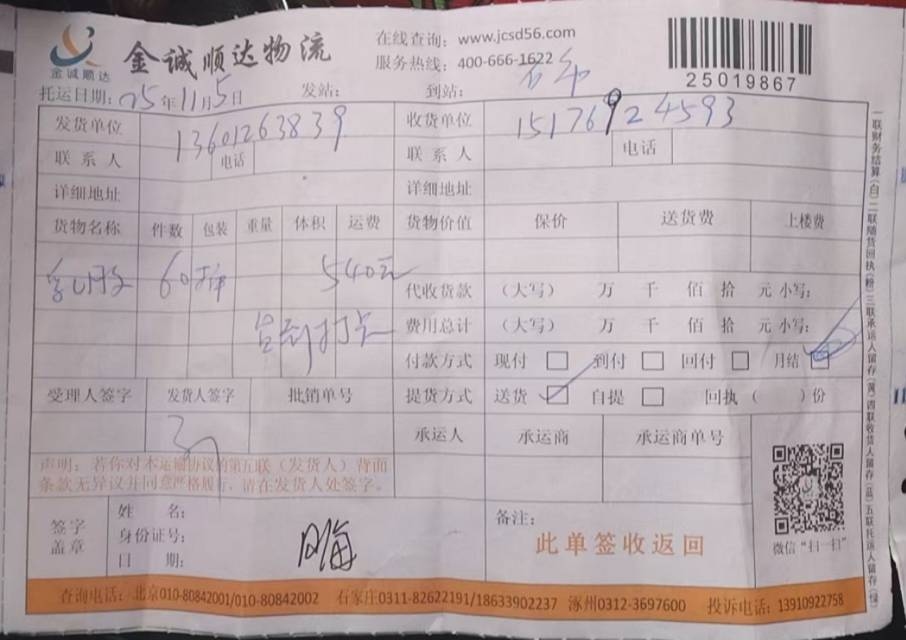 金诚顺达
金诚顺达物流
在线查询：www.jcsd56.com
服务热线：400-666-1622
25019867
托运日期：25年11月5日 发站： 到站：
发货单位 13601263839 收货单位 15176924593
联系人 电话 联系人 电话
详细地址 详细地址
货物名称 件数 包装 重量 体积 运费 货物价值 保价 送货费 上楼费
60 540元
代收货款 （大写） 万 千 佰 拾 元 小写：
费用总计 （大写） 万 千 佰 拾 元 小写：
付款方式 现付 到付 回付 月结
受理人签字 发货人签字 批销单号 提货方式 送货 自提 回执（ ）份
承运人 承运商 承运商单号
声明：若你对本运输协议的第五联（发货人）背面
条款无异议并同意严格履行，请在发货人处签字。
签字
盖章
姓 名：
身份证号：
日 期：
备注：
此单签收返回
微信“扫一扫”
一联财务结算（白）二联随货回执（粉）三联承运人留存（黄）四联收货人留存（蓝）五联托运人留存（绿）
查询电话：北京010-80842001/010-80842002 石家庄0311-82622191/18633902237 涿州0312-3697600 投诉电话：13910922758